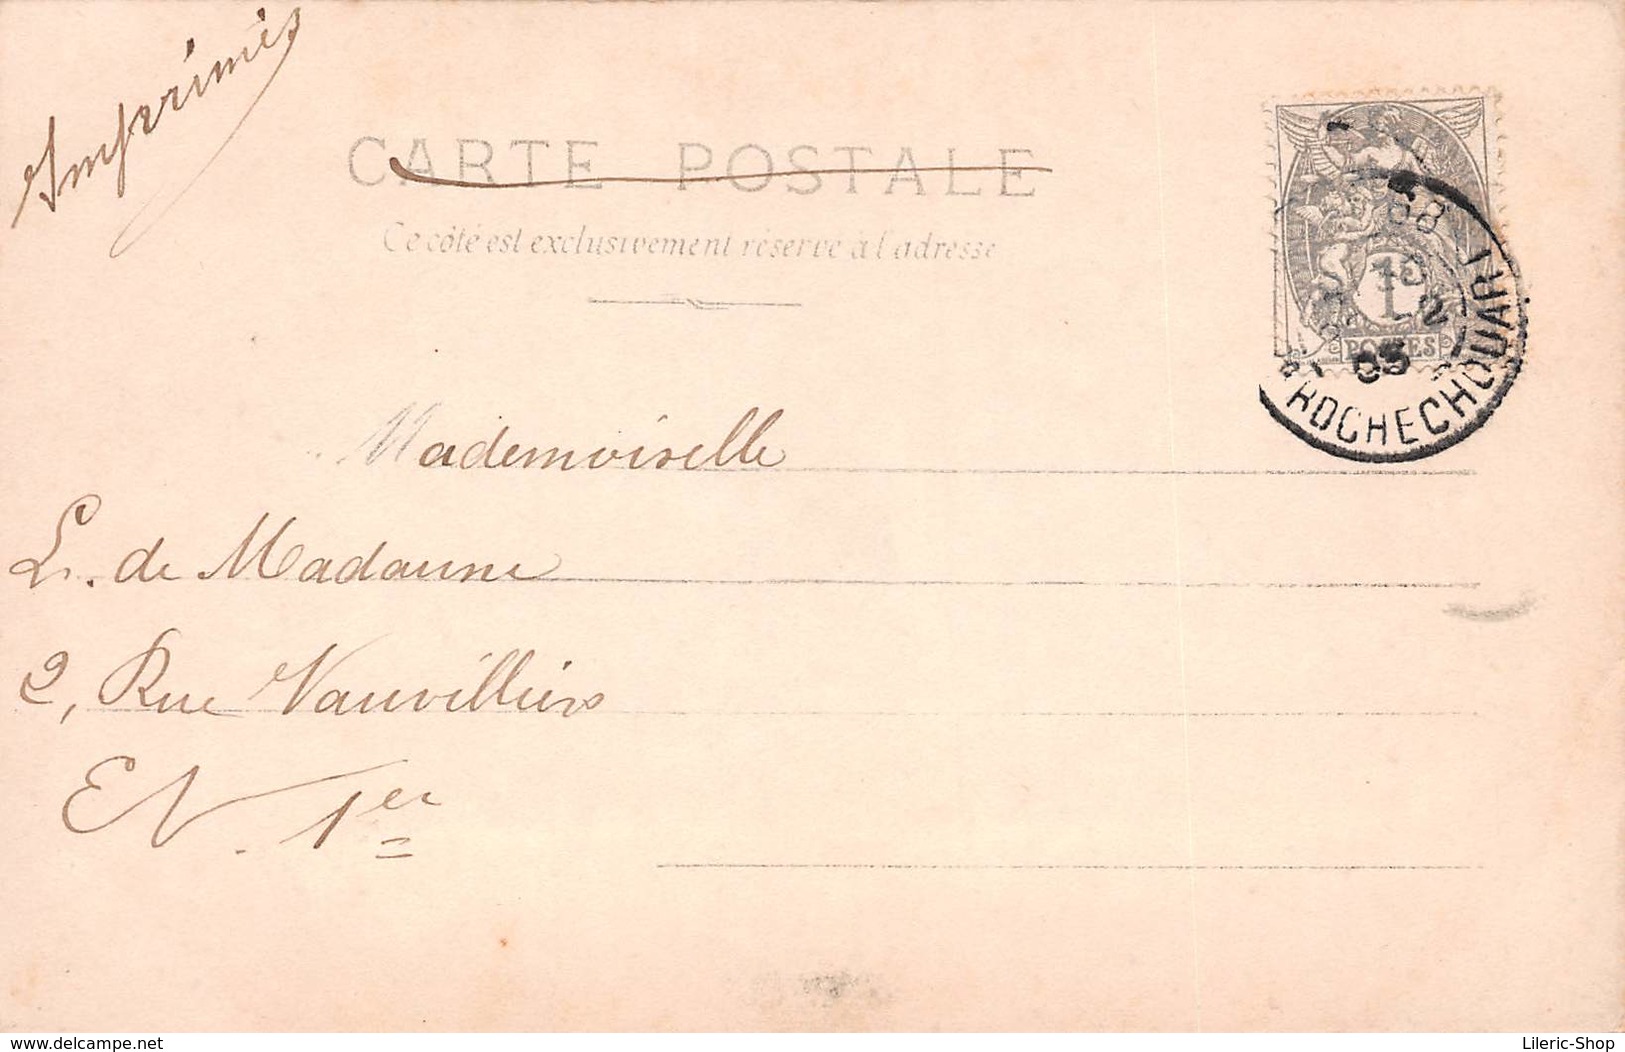 Imprimés
CARTE POSTALE
Ce côté est exclusivement réservé à l'adresse
1
POSTES
68
03
ROCHECHOUART
Mademoiselle
L. de Madaune
2, Rue Vauvilliers
EV. 1er
www.delcampe.net
Lileric-Shop